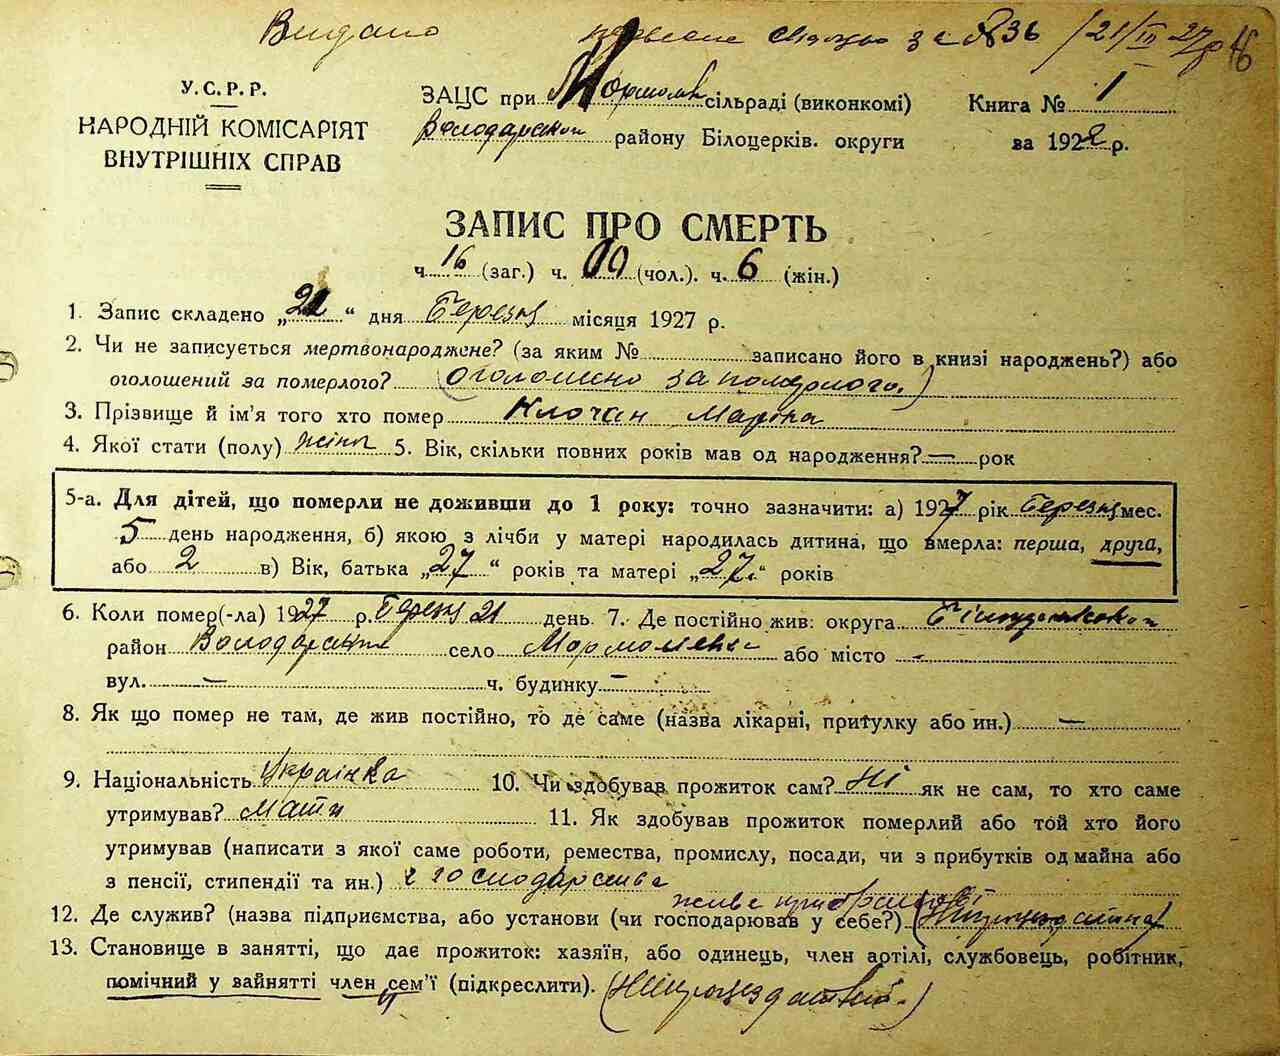 Видано первене за № 36 /21/III 27р 16
У.С.Р.Р.
НАРОДНІЙ КОМІСАРІЯТ
ВНУТРІШНІХ СПРАВ
ЗАЦС при сільраді (виконкомі)
Володарского району Білоцерків. округи
Книга № 1
за 192 р.
ЗАПИС ПРО СМЕРТЬ
ч. 16 (заг.) ч. 10 (чол.). ч. 6 (жін.)
1. Запис складено „21“ дня Березня місяця 1927 р.
2. Чи не записується мертвонароджене? (за яким № записано його в книзі народжень?) або
оголошений за померлого? (оголошено за померлого.)
3. Прізвище й ім'я того хто помер Клочан Маріна
4. Якої стати (полу) жіноч 5. Вік, скільки повних років мав од народження? — рок
5-а. Для дітей, що померли не доживши до 1 року: точно зазначити: а) 1927 рік Березня мес.
5 день народження, б) якою з лічби у матері народилась дитина, що вмерла: перша, друга,
або 2 в) Вік, батька „27“ років та матері „27“ років
6. Коли помер(-ла) 1927 р. Березня 21 день 7. Де постійно жив: округа
район Володарский село або місто —
вул. — ч. будинку —
8. Як що помер не там, де жив постійно, то де саме (назва лікарні, притулку або ин.) —
9. Національність Українка 10. Чи здобував прожиток сам? Ні як не сам, то хто саме
утримував? Мати 11. Як здобував прожиток померлий або той хто його
утримував (написати з якої саме роботи, ремества, промислу, посади, чи з прибутків од майна або
з пенсії, стипендії та ин.) з господарства
живе при
12. Де служив? (назва підприємства, або установи (чи господарював у себе?)
13. Становище в занятті, що дає прожиток: хазяїн, або одинець, член артілі, службовець, робітник,
помічний у вайнятті член сем'ї (підкреслити).